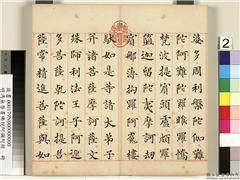 婆多周利槃陀伽難
陀阿難陀羅睺羅憍
梵波提賓頭盧頗羅
墮迦留陀夷摩訶劫
賓那薄拘羅阿㝹樓
馱如是等諸大弟子
并諸菩薩摩訶薩文
殊師利法王子阿逸
多菩薩乾陀訶提菩
薩常精進菩薩與如